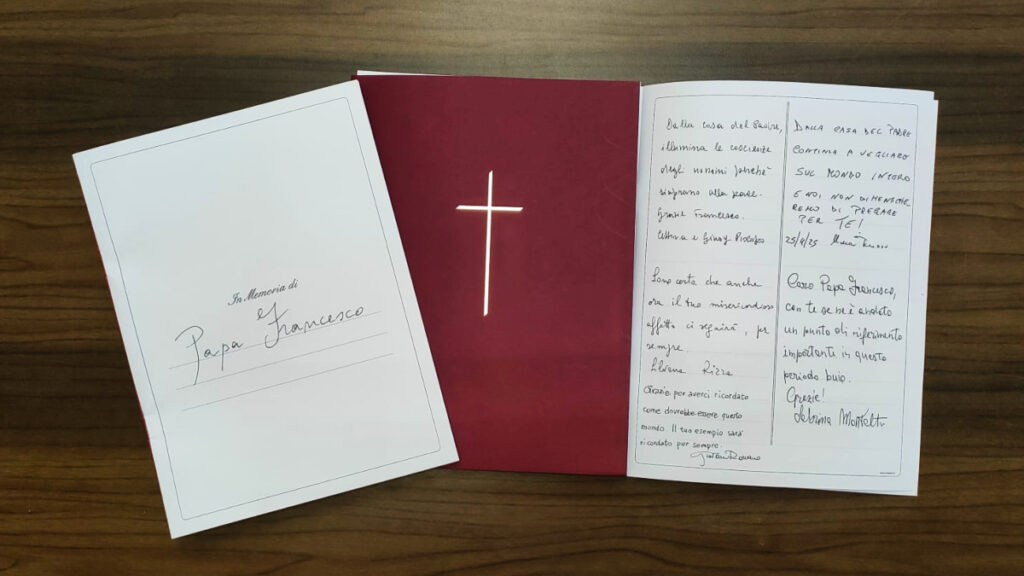 In Memoria di
Papa Francesco
Dalla casa del Padre,
illumina le coscienze
degli uomini perchè
si aprano alla pace.
Grazie Francesco.
e
Sono certa che anche
ora il tuo misericordioso
affetto ci seguirà, per
sempre.
Liliana Rizza
Grazie per averci ricordato
come dovrebbe essere questo
mondo. Il tuo esempio sarà
ricordato per sempre.
DALLA CASA DEL PADRE
CONTINUA A VEGLIARE
SUL MONDO INTERO
E NOI, NON DIMENTICHE
REMO DI PREGARE
PER TE!
25/4/25
Caro Papa Francesco,
con te se ne è andato
un punto di riferimento
importante in questo
periodo buio.
Grazie!
Sabrina